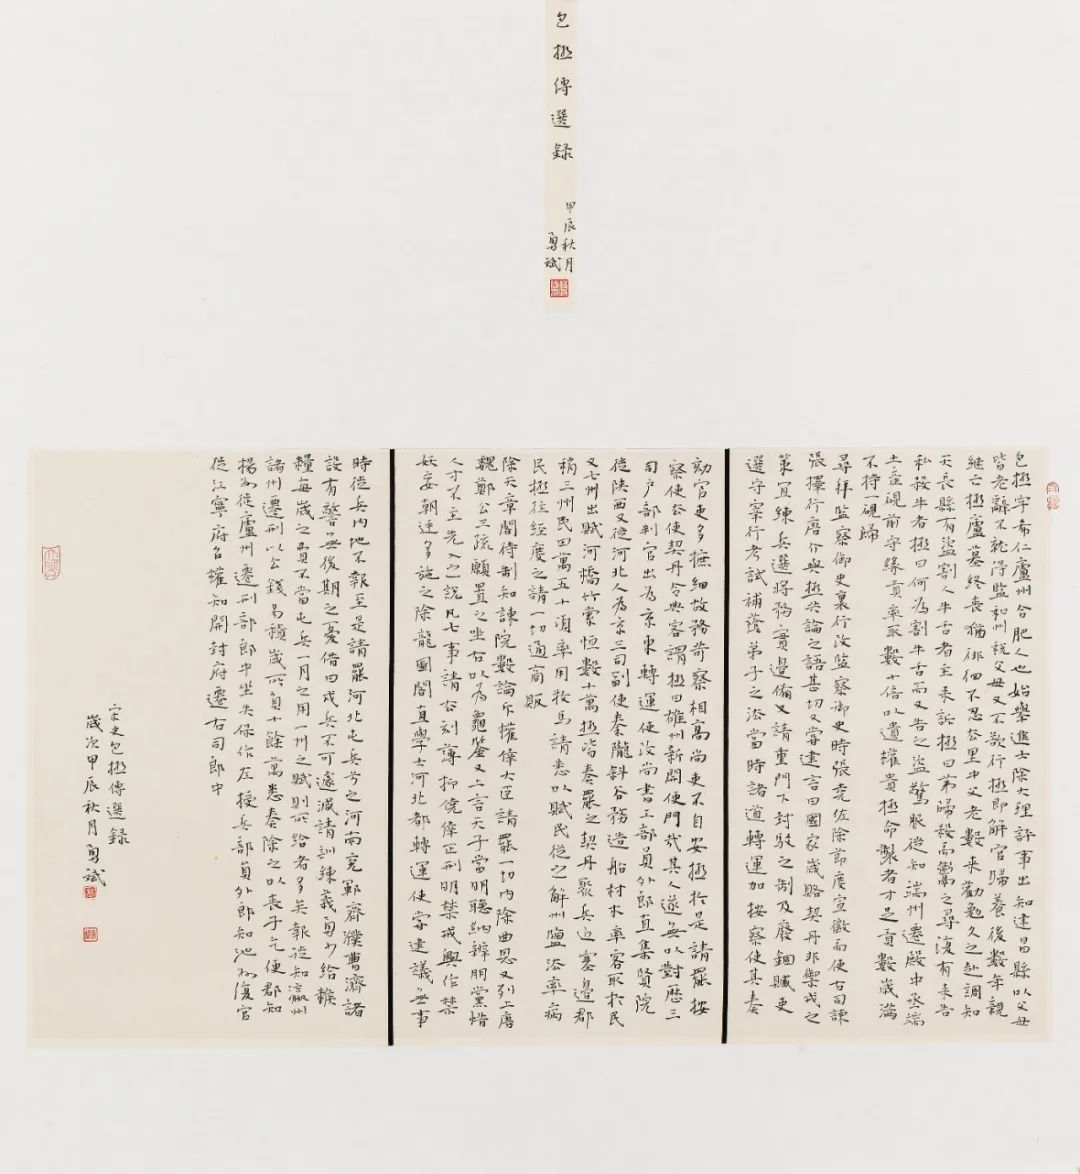 包拯傳選錄
甲辰秋月
勇斌
包拯字希仁廬州合肥人也始舉進士除大理評事出知建昌縣以父母
皆老辭不就得監和州稅父母又不欲行拯即解官歸養後數年親
繼亡拯廬墓終喪猶徘徊不忍去里中父老數來勸勉久之赴調知
天長縣有盜割人牛舌者主來訴拯曰第歸殺而鬻之尋復有來告
私殺牛者拯曰何為割牛舌而又告之盜驚服徙知端州遷殿中丞端
土產硯前守緣貢率取數十倍以遺權貴拯命製者才足貢數歲滿
不持一硯歸
尋拜監察御史裏行改監察御史時張堯佐除節度宣徽兩使右司諫
張擇行唐介與拯共論之語甚切又嘗建言曰國家歲賂契丹非禦戎之
策宜練兵選將務實邊備又請重門下封駁之制及廢錮贓吏
選守宰行考試補蔭弟子之法當時諸道轉運加按察使其奏
劾官吏多摭細故務苛察相高尚吏不自安拯於是請罷按
察使去使契丹令典客謂拯曰雄州新開便門哉其人遂無以對歷三
司戶部判官出為京東轉運使改尚書工部員外郎直集賢院
徙陝西又徙河北入為京三司副使秦隴斜谷務造船材木率客取於民
又七州出賦河橋竹索恒數十萬拯皆奏罷之契丹聚兵近塞邊郡
稍三州民田萬五千頃率用牧馬請悉以賦民從之解州鹽法率病
民拯往經度之請一切通商販
除天章閣待制知諫院數論斥權倖大臣請罷一切內除曲恩又列上唐
魏鄭公三疏願置之坐右以為龜鑒又上言天子當明聽納辨朋黨惜
人才不主先入之說凡七事請去刻薄抑僥倖正刑明禁戒興作禁
妖妄朝廷多施之除龍圖閣直學士河北都轉運使嘗建議無事
時徙兵內地不報至是請罷河北屯兵分之河南兗鄆齊濮曹濟諸
設有警無後期之憂借曰戍兵不可遽減請訓練義勇少給餱
糧每歲之費不當屯兵一月之用一州之賦則所給者多矣報徙知瀛州
諸州遷刑以公錢易積歲所負十餘萬悉奏除之以喪子乞便郡知
揚州徙廬州遷刑部郎中坐失保任左授兵部員外郎知池州復官
徙江寧府召權知開封府遷右司郎中
宋史包拯傳選錄
歲次甲辰秋月勇斌